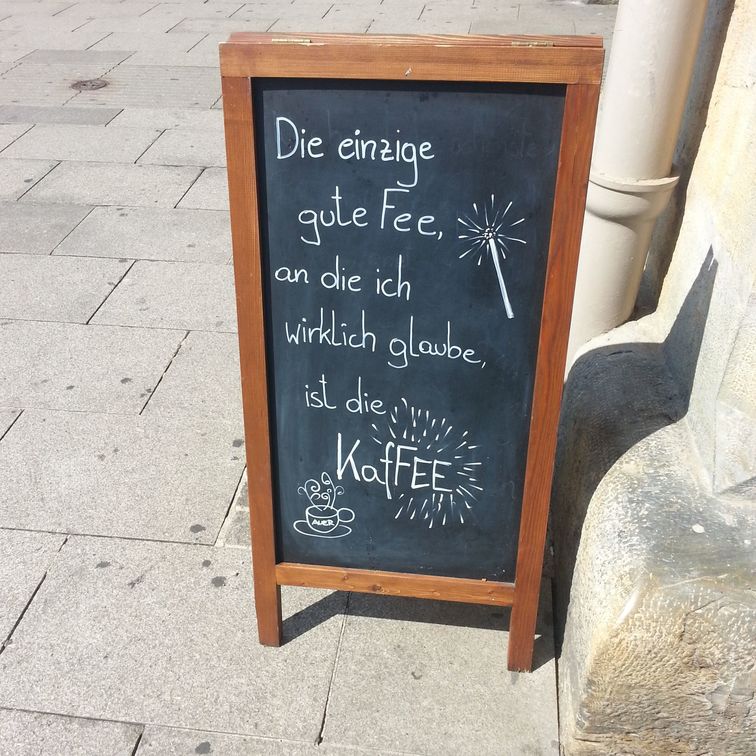 Die einzige
gute Fee,
an die ich
wirklich glaube,
ist die
KafFEE
AUER